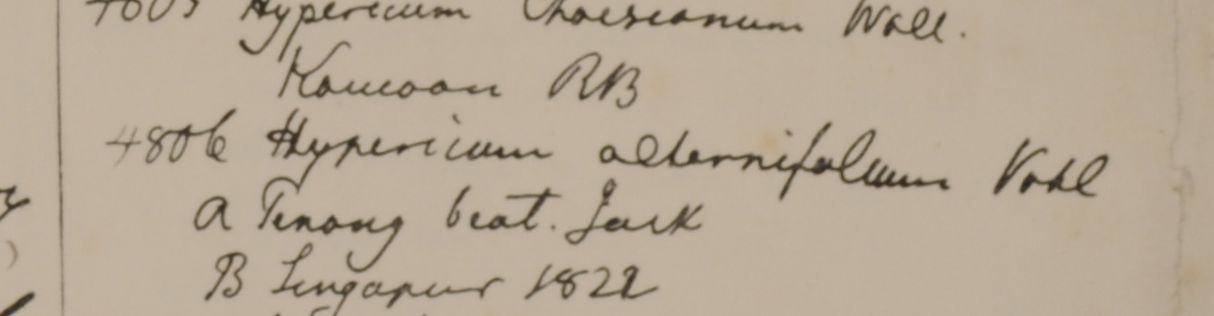 4805 Hypericum Choisianum Wall.
Kamoon RB
4806 Hypericum alternifolium Vahl
A Penang beat. Jack
B Singapur 1822